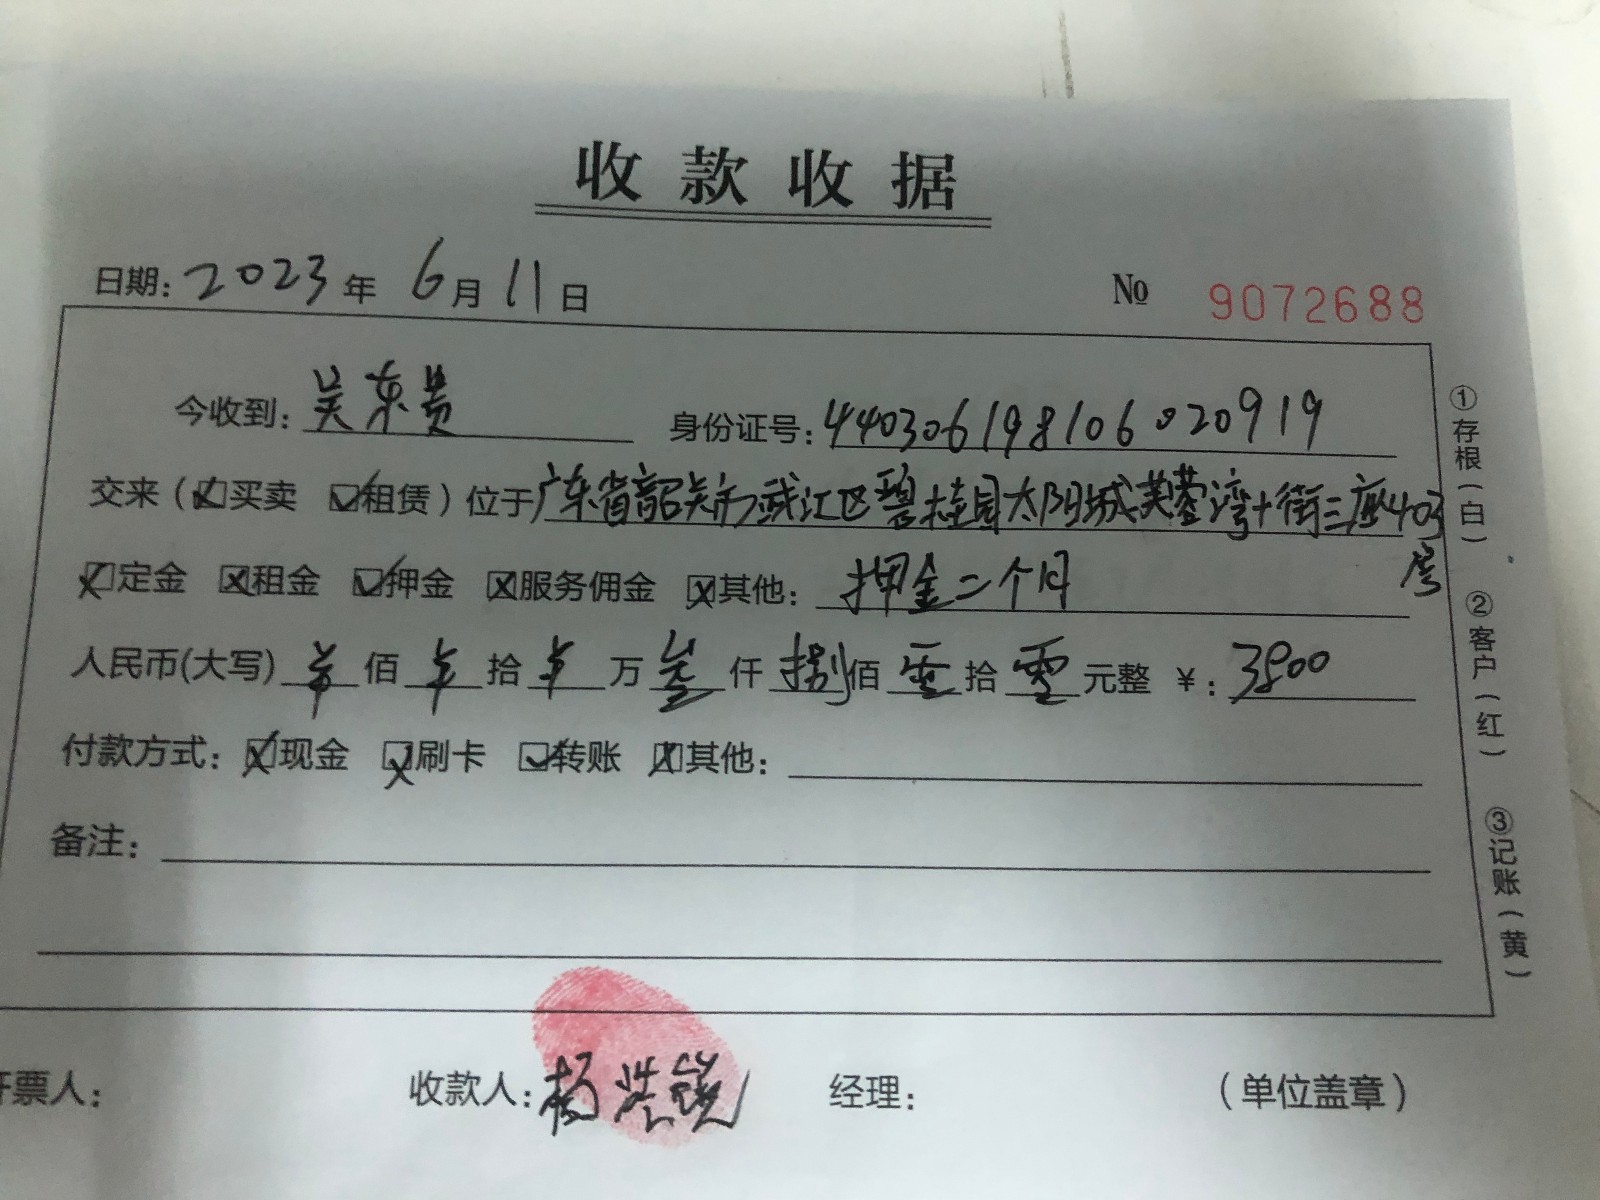 收款收据
日期：2023年 6月11日 № 9072688
今收到：吴东贵 身份证号：440306198106020919
交来（☒买卖 ☑租赁）位于广东省韶关市武江区碧桂园太阳城芙蓉湾十街三座403
房
☒定金 ☒租金 ☑押金 ☒服务佣金 ☒其他：押金二个月
人民币(大写) 佰 拾 万 叁仟 捌佰 零拾 零元整 ¥：3800
付款方式：☒现金 ☒刷卡 ☑转账 ☒其他：
备注：
开票人： 收款人：杨 经理： （单位盖章）
①存根（白）
②客户（红）
③记账（黄）